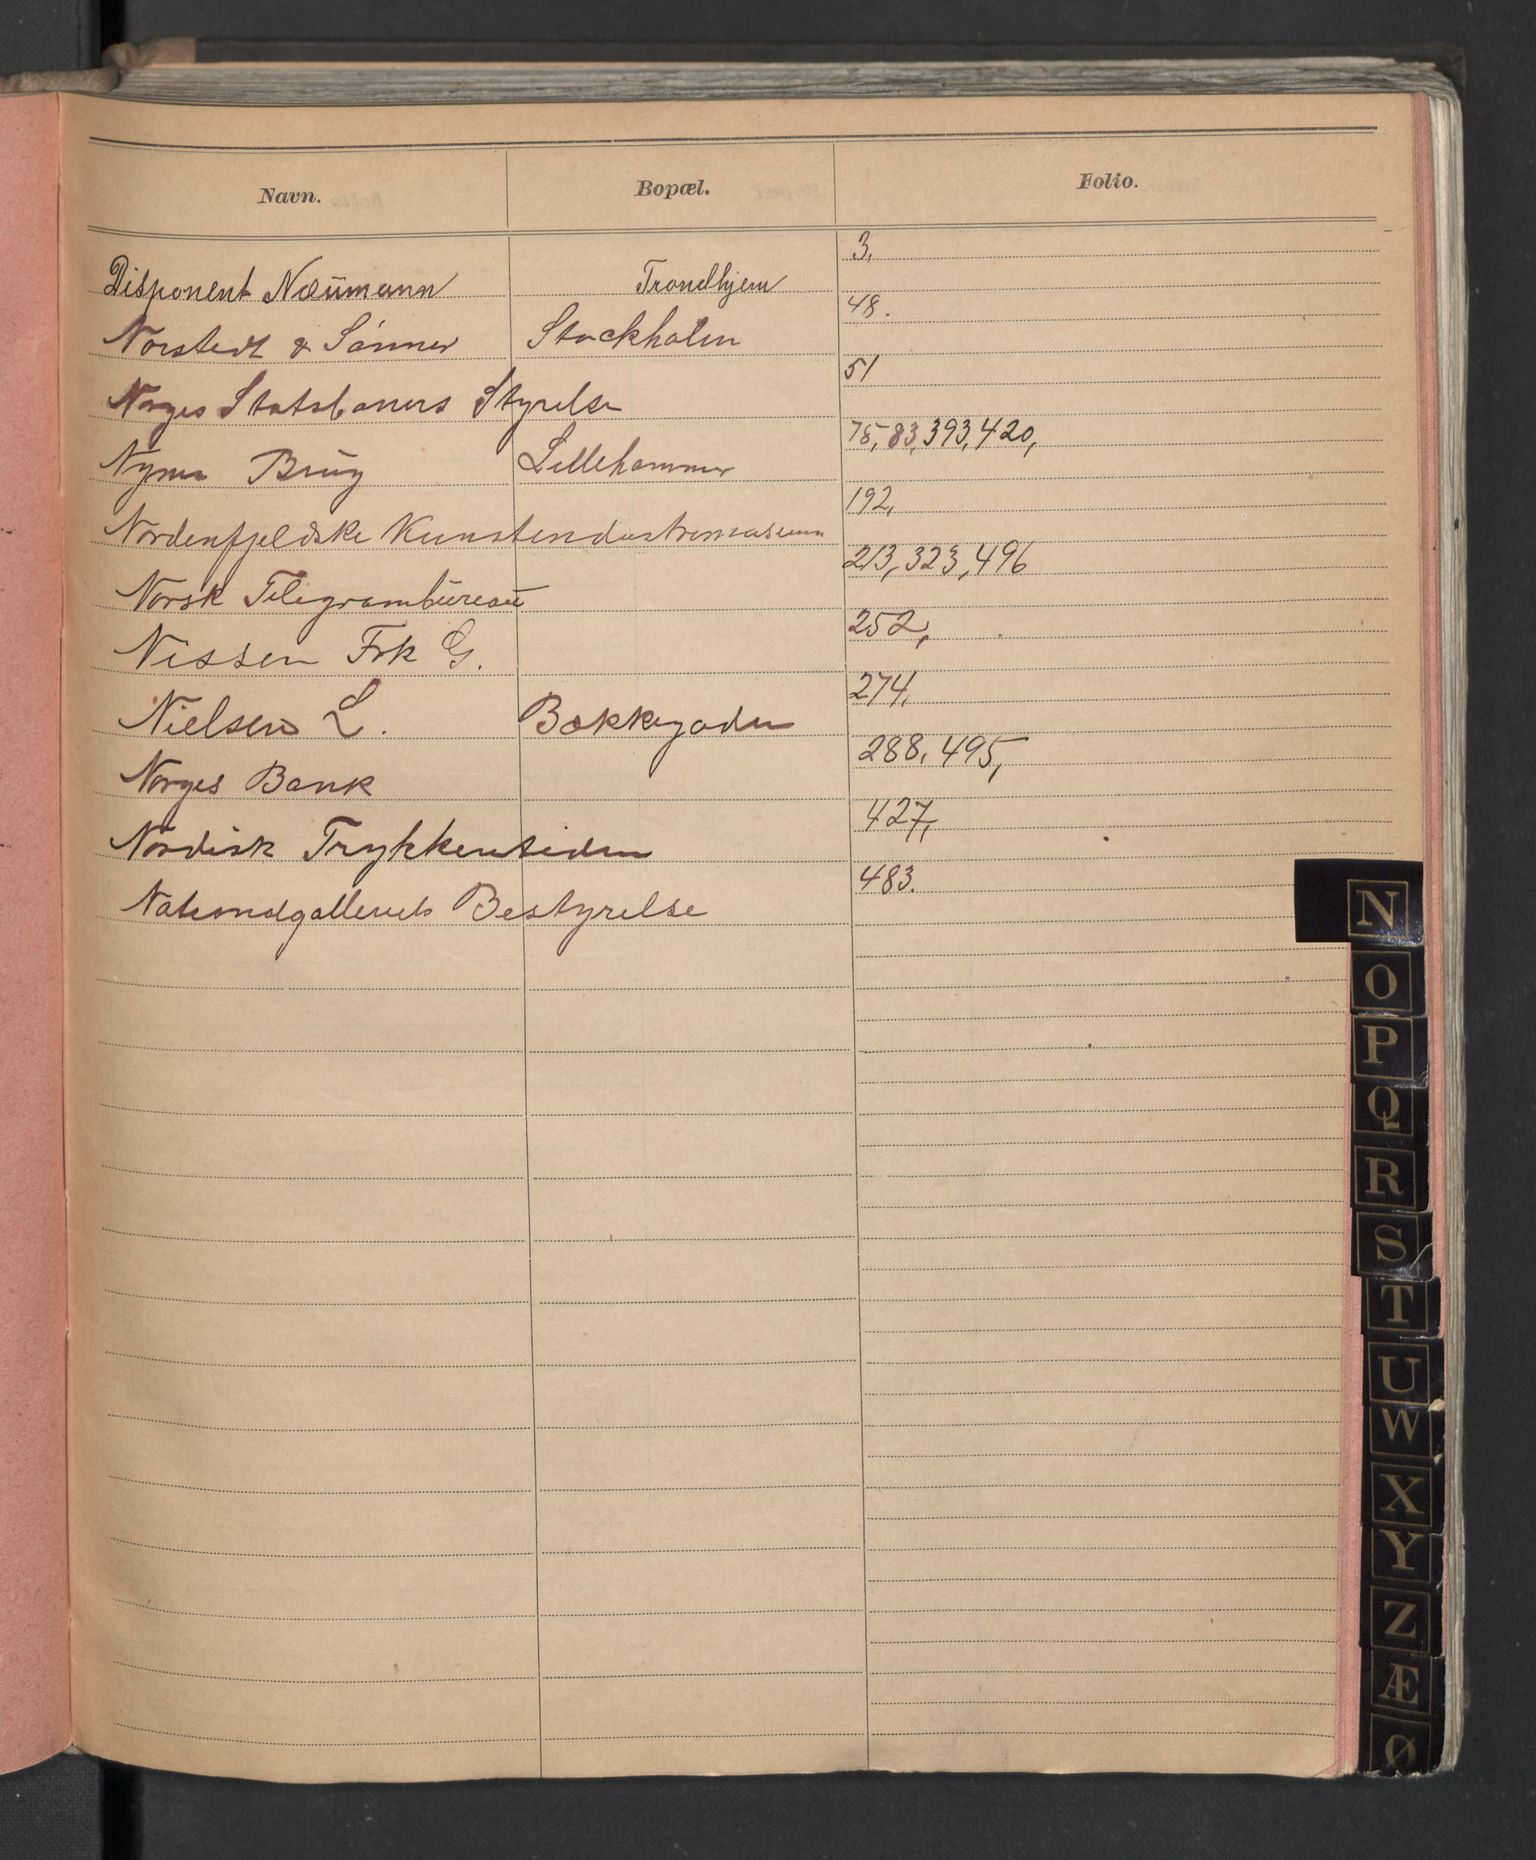 Navn. Bopæl. Folio.
Disponent Naumann Trondhjem 3,
Norstedt & Sönner Stockholm 48.
Norges Statsbaners Styrelse 51
Brug Lillehammer 75, 83, 393, 420,
Nordenfjeldske Kunstendustrimuseum 192,
Norsk Telegrambureau 213, 323, 496
Nissen Frk G. 252,
Nielsen L. Bakkegaden 274,
Norges Bank 288, 495,
Nordisk Trykkeritidende 427,
Nationalgalleriets Bestyrelse 483.
N
O
P
Q
R
S
T
U
W
X
Y
Z
Æ
Ø